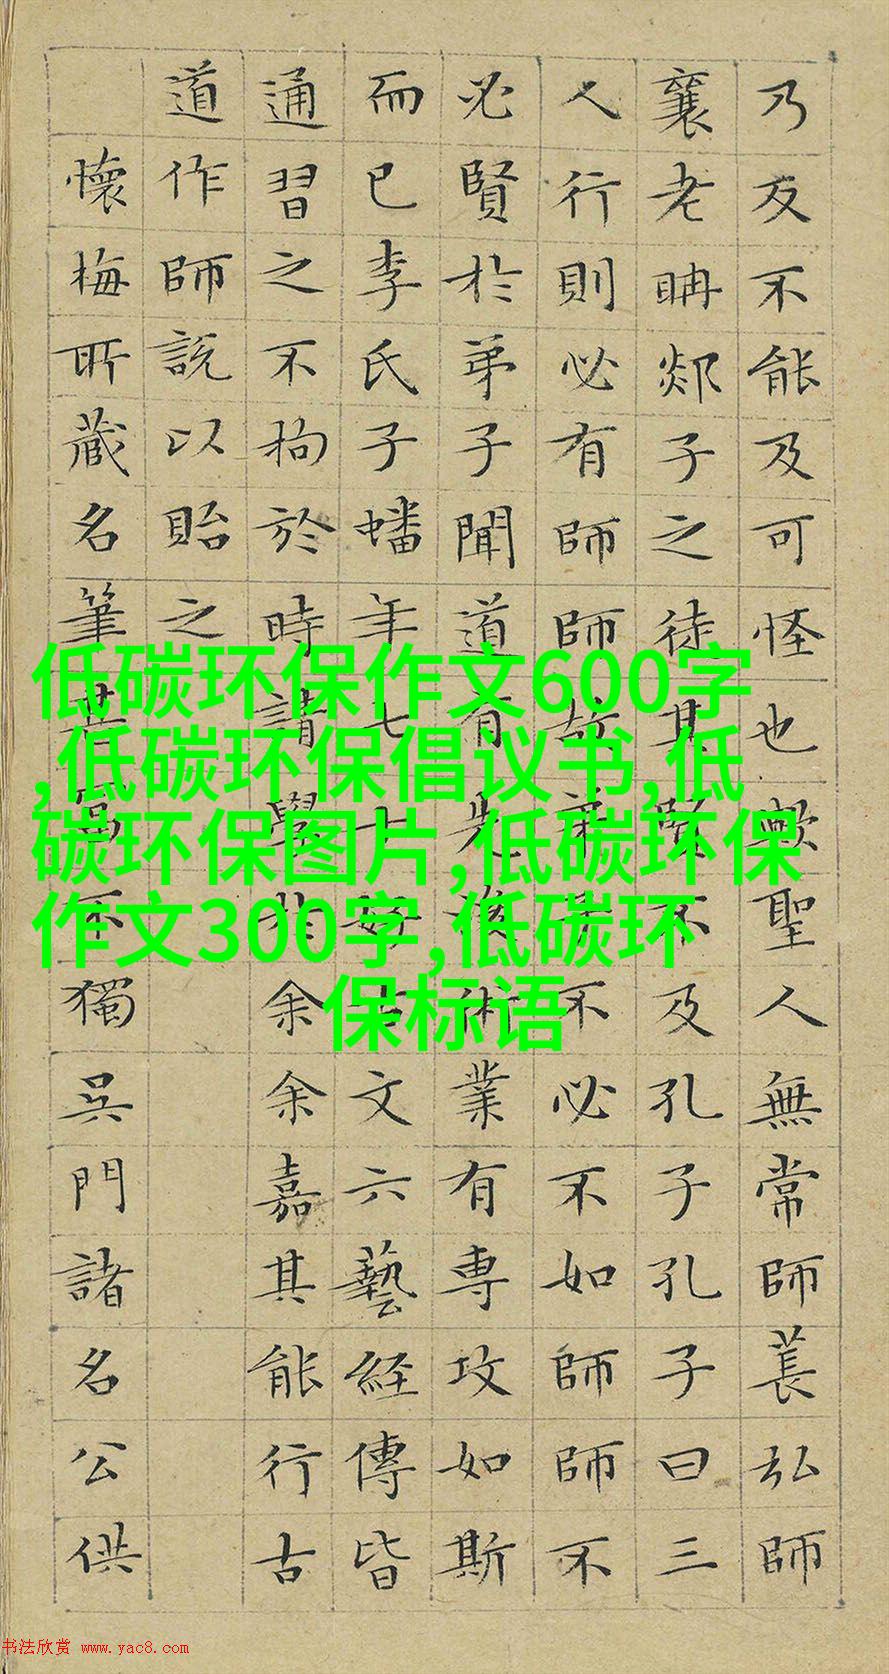 乃反不能及可怪也歟聖人無常師萇弘師
襄老聃郯子之徒其賢不及孔子孔子曰三
人行則必有師師故弟子不必不如師師不
必賢於弟子聞道有先後術業有專攻如斯
而已李氏子蟠年七十好古文六藝経傳皆
通習之不拘於時請學於余余嘉其能行古
道作師說以貽之
懷梅所藏名筆不獨吳門諸名公供
低碳环保作文600字
,低碳环保倡议书,低
碳环保图片,低碳环保
作文300字,低碳环
保标语
书法欣赏 www.yac8.com